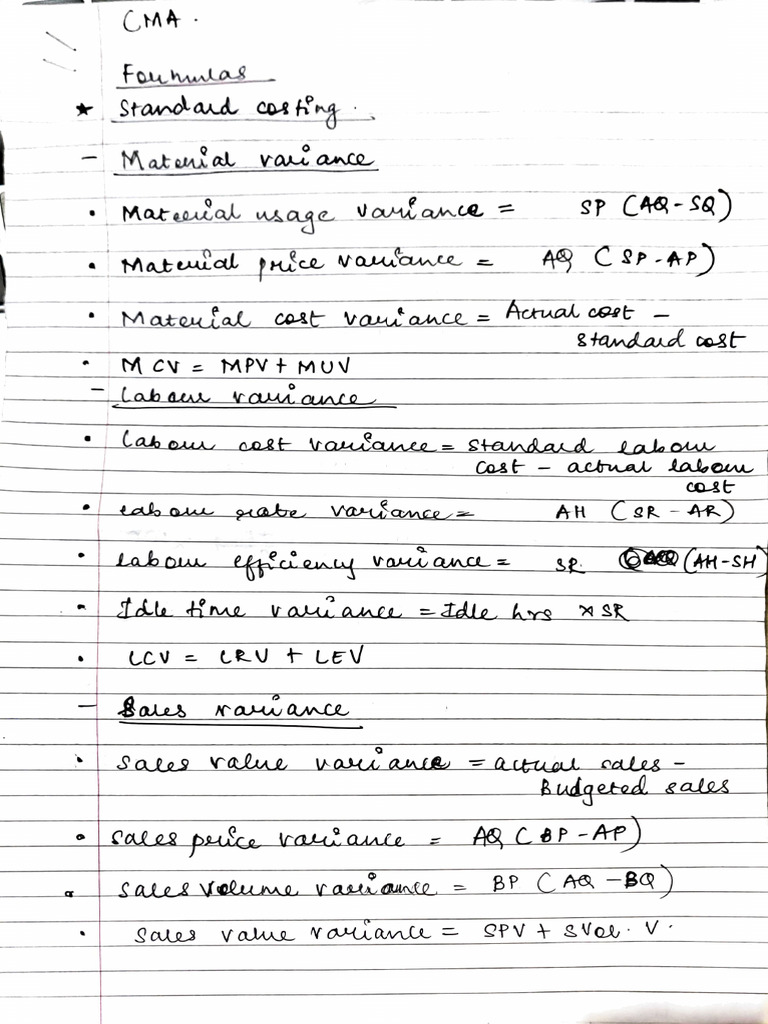 CMA.
Formulas
* Standard costing.
- Material variance
• Material usage variance = SP (AQ - SQ)
• Material price variance = AQ (SP - AP)
• Material cost variance = Actual cost -
standard cost
• MCV = MPV + MUV
- Labour variance
• Labour cost variance = standard labour
cost - actual labour
cost
• labour rate variance = AH (SR - AR)
• labour efficiency variance = SR (AH - SH)
• Idle time variance = Idle hrs × SR
• LCV = LRV + LEV
- Sales variance
• Sales value variance = actual sales -
Budgeted sales
• Sales price variance = AQ (BP - AP)
• Sales volume variance = BP (AQ - BQ)
• Sales value variance = SPV + SVol. V.